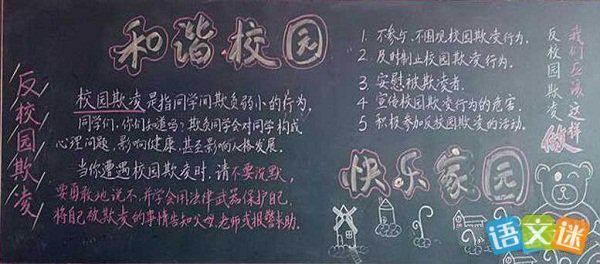 反校园欺凌
和谐校园
校园欺凌是指同学间欺负弱小的行为,
同学们,你们知道吗?欺负同学会对同学构成
心理问题,影响健康,甚至影响人格发展。
当你遭遇校园欺凌时,请不要沉默,
要勇敢地说不,并学会用法律武器保护自己,
将自己被欺凌的事情告知父母、老师或报警求助。
1. 不参与、不围观校园欺凌行为。
2. 及时制止校园欺凌行为。
3. 安慰被欺凌者。
4. 宣传校园欺凌行为的危害
5. 积极参加反校园欺凌的活动。
我们应该这样做
反校园欺凌
快乐家园
语文迷